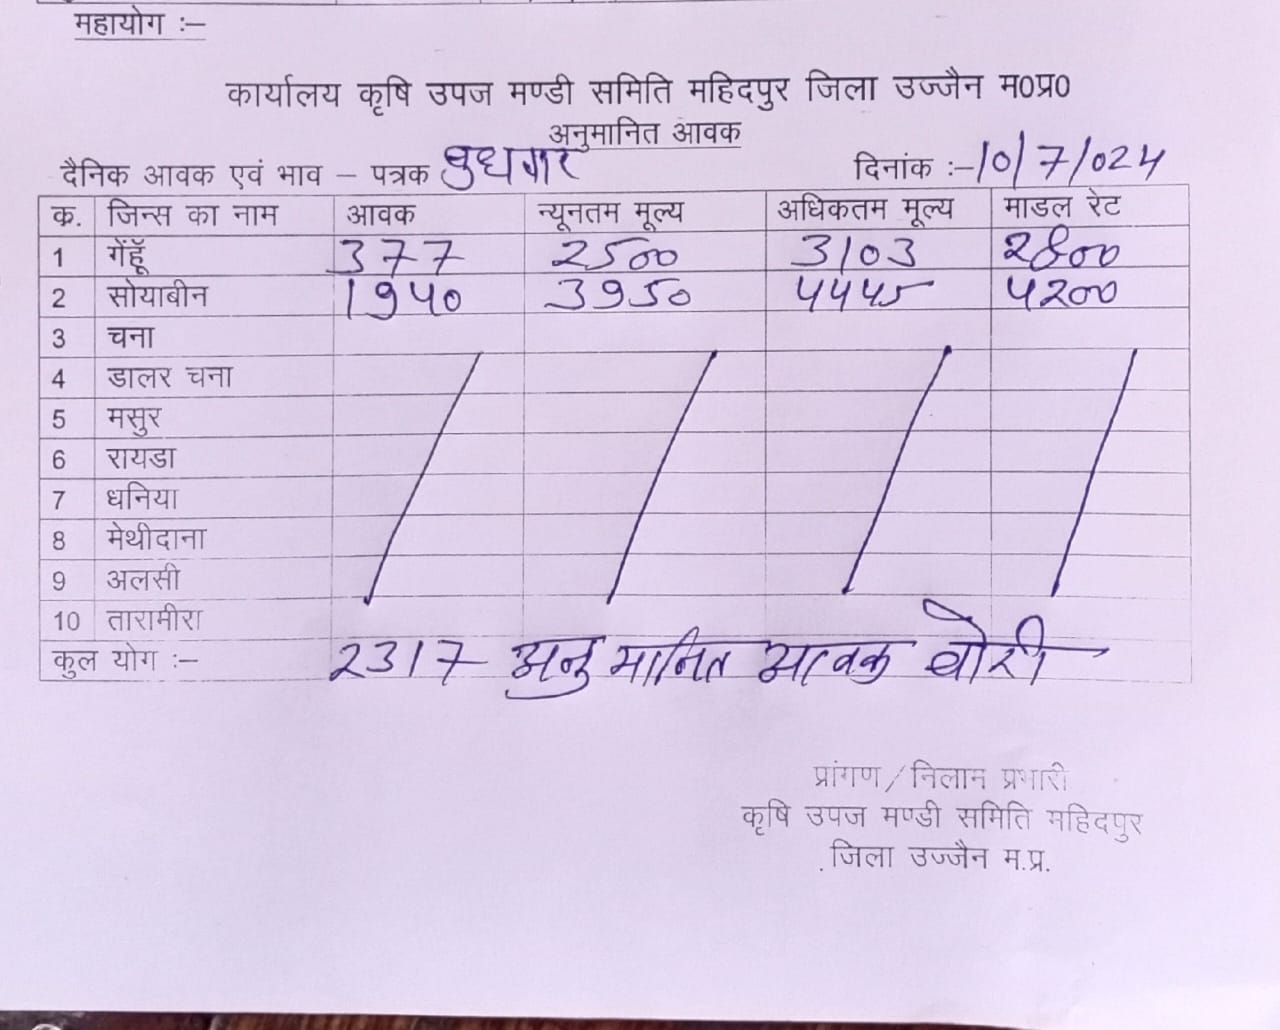 महायोग :–
कार्यालय कृषि उपज मण्डी समिति महिदपुर जिला उज्जैन म0प्र0
अनुमानित आवक
दैनिक आवक एवं भाव – पत्रक बुधवार दिनांक :–10/7/024
क. जिन्स का नाम आवक न्यूनतम मूल्य अधिकतम मूल्य माडल रेट
1 गेंहूॅ 377 2500 3103 2800
2 सोयाबीन 1940 3950 4445 4200
3 चना
4 डालर चना
5 मसुर
6 रायडा
7 धनिया
8 मेथीदाना
9 अलसी
10 तारामीरा
कुल योग :– 2317 अनुमानित आवक बोरी
प्रांगण/निलाम प्रभारी
कृषि उपज मण्डी समिति महिदपुर
.जिला उज्जैन म.प्र.